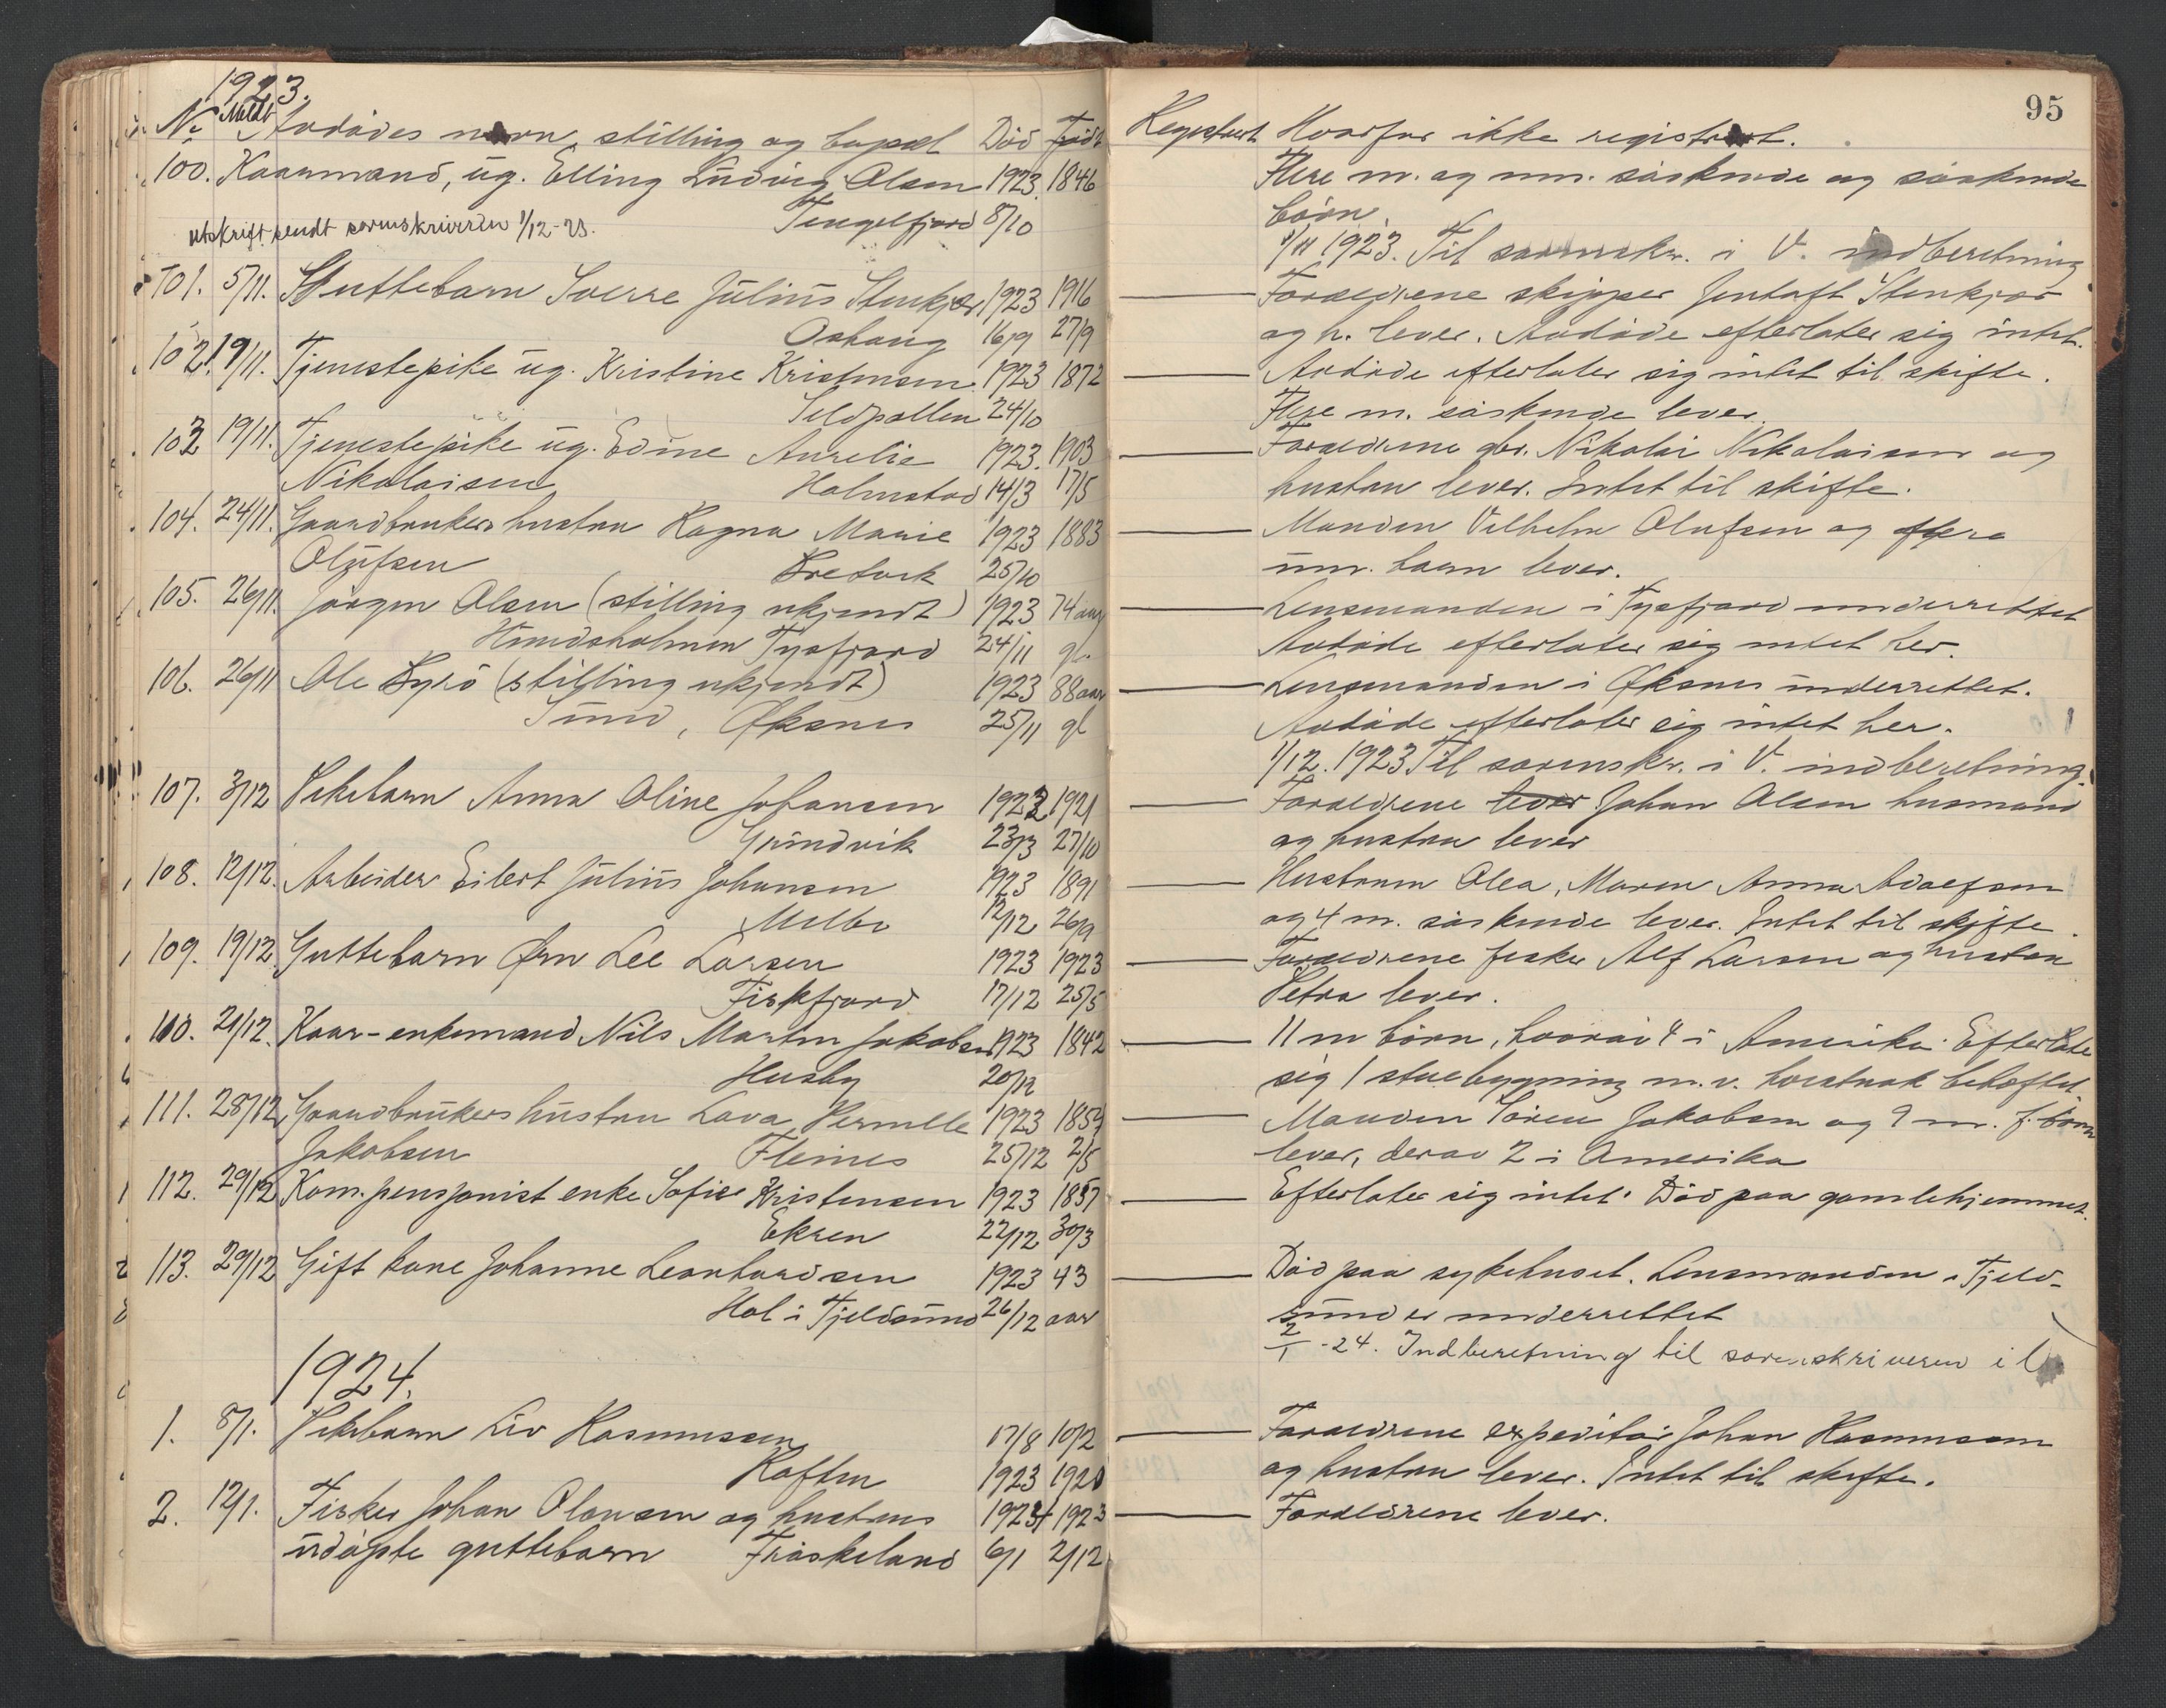 1923.
No Meldt Avdødes navn, stilling og bopæl Død Født
100. Kaarmand, ug. Elling Ludvig Olsen 1923 1846
utskrift sendt sorenskriveren 1/12-23. Tengelfjord 8/10
101. 5/11. Guttebarn Sverre Julius Stenkjær 1923 1916
16/9 27/9
102. 19/11. Tjenestepike ug. Kristine Kristensen 1923 1872
Sildpollen 24/10
103 19/11. Tjenestepike ug. Edine Aurelie 1923. 1903
Nikolaisen Holmstad 14/3 17/5
104. 24/11. Gaardbrukers hustru Ragna Marie 1923 1883
Olufsen Bretvik 25/10
105. 26/11. Jørgen Olsen (stilling ukjendt) 1923 74 aar
Hundsholmen Tysfjord 24/11 gl.
106. 26/11 Ole Byrø (stilling ukjendt) 1923 88 aar
Sund, Øksnes 25/11 gl
107. 3/12 Pikebarn Anna Oline Johansen 1923 1921
Grundvik 23/3 27/10
108. 12/12. Arbeider Eilert Julius Johansen 1923 1891
Melbo 12/12 26/9
109. 19/12. Guttebarn Ørn Lee Larsen 1923 1923
Fiskfjord 17/12 25/5
110. 21/12. Kaar-enkemand Nils Martin Jakobsen 1923 1842
Husby 20/12
111. 28/12 Gaardbrukers hustru Lava Pernille 1923 1859
Jakobsen Fleines 25/12 2/5
112. 29/12 Kom.pensjonist enke Sofie Kristensen 1923 1857
Ekren 22/12 30/3
113. 29/12 Gift kone Johanne Leonhardsen 1923 43
Hol i Tjeldsund 26/12 aar
1924.
1. 8/1. Pikebarn Liv Rasmussen 17/8 10/2
Raften 1923 1920
2. 12/1. Fisker Johan Olavsen og hustrus 1924 1923
udøpte guttebarn Frøskeland 6/1 2/12
95
Registrert Hvorfor ikke registrert.
Flere m. og um. søskende og søskende
børn
1/11 1923. Til sorenskr. i V. indberetning
Forældrene skipper Jentoft Stenkjær
og h. lever. Avdøde efterlater sig intet.
Avdøde efterlater sig intet til skifte.
Flere m. søskende lever.
Forældrene gbr. Nikolai Nikolaisen og
hustru lever. Intet til skifte.
Manden Vilhelm Olufsen og flere
um. barn lever.
Lensmanden i Tysfjord underrettet
Avdøde efterlater sig intet her.
Lensmanden i Øksnes underrettet.
Avdøde efterlater sig intet her.
1/12. 1923 Til sorenskr. i V. indberetning.
Forældrene lever Johan Olsen husmand
og hustru lever
Hustruen Olea, Maren Anna Adolfsen
og 4 m. søskende lever. Intet til skifte.
Forældrene fisker Alf Larsen og hustru
Petra lever.
11 m børn, hvorav 4 i Amerika. Efterlate
sig 1 stuebygning m.v. hvorav beheftet
Manden Søren Jakobsen og 9 m. f. børn
lever, derav 2 i Amerika
Efterlater sig intet. Død paa gamlehjemmet.
Død paa sykehuset. Lensmanden i Tjeld-
sund er underrettet
2/1 -24. Indberetning til sorenskriveren i V.
Forældrene expeditør Johan Rasmussen
og hustru lever. Intet til skifte.
Forældrene lever.